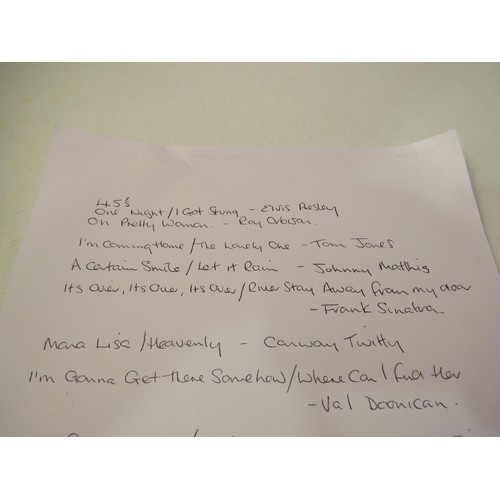 45s
One Night/I Got Stung - Elvis Presley
Oh Pretty Woman - Roy Orbison.
I'm Coming Home/The Lonely One - Tom Jones
A Certain Smile/Let it Rain - Johnny Matthis
Its Over, Its Over, Its Over/River Stay Away from my door
- Frank Sinatra.
Mona Lisa/Heavenly - Conway Twitty
I'm Gonna Get There Somehow/Where Can I Find Her
- Val Doonican.